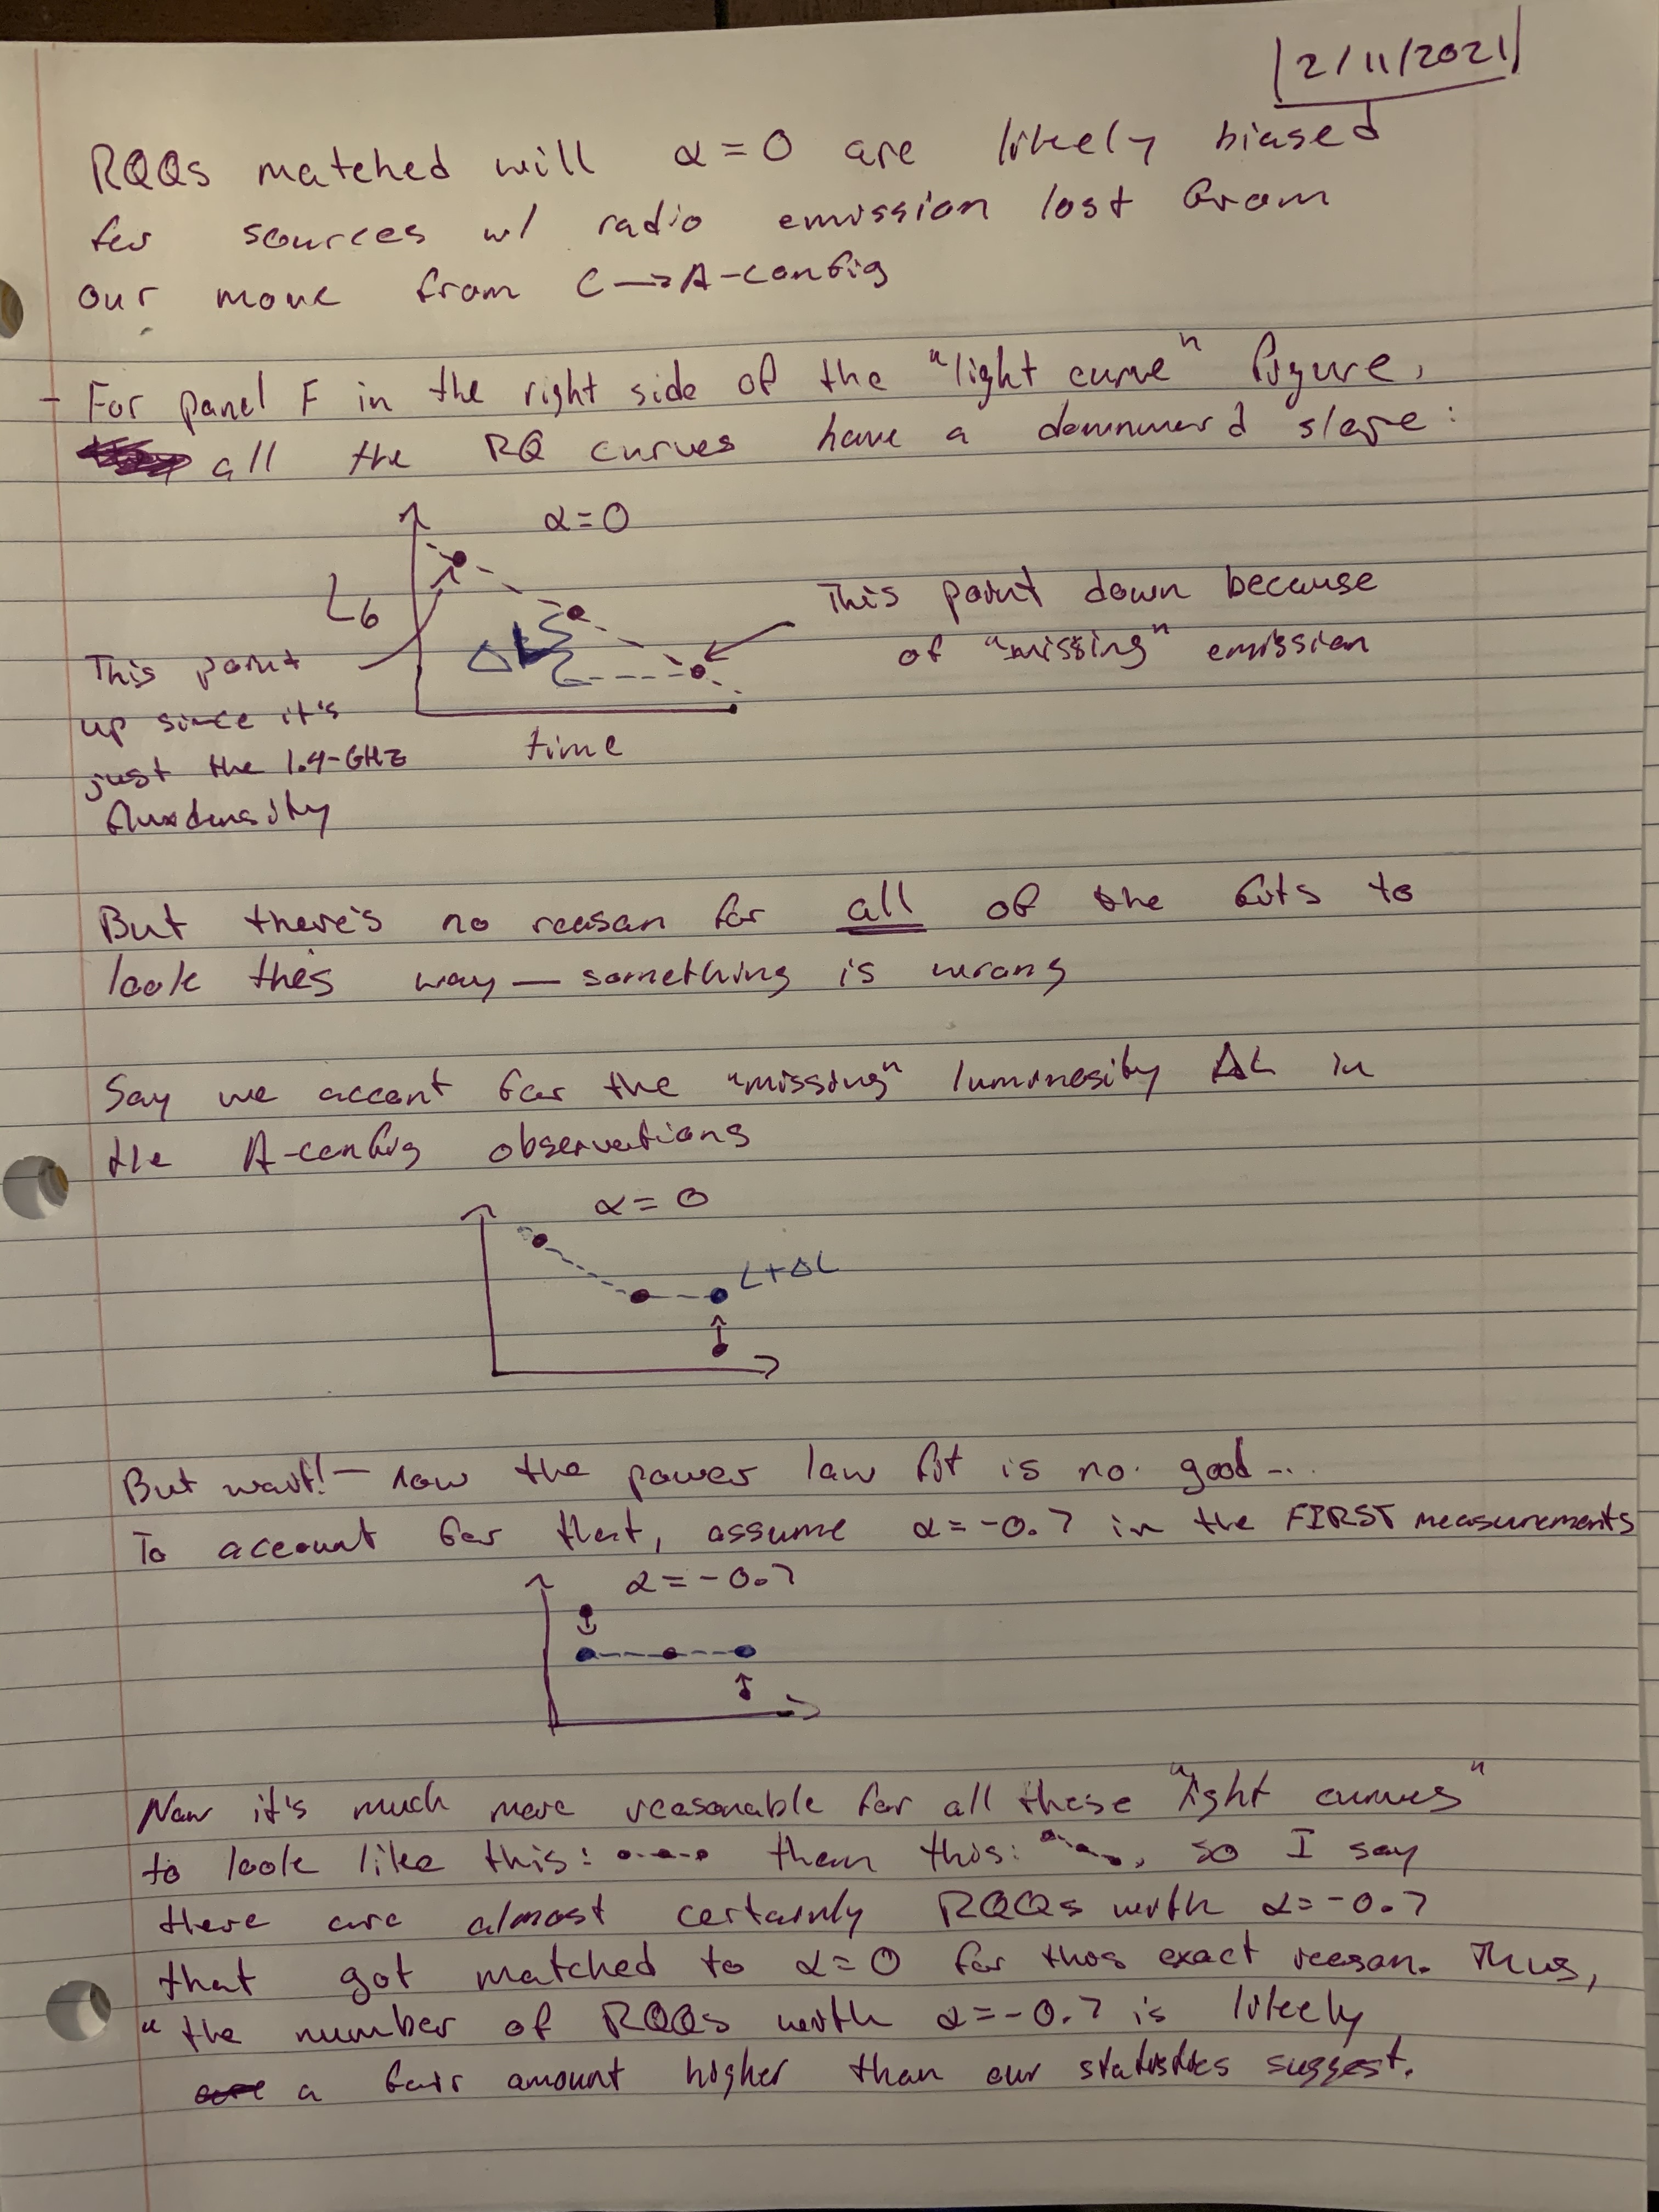 12/11/2021
RQQs matched will α=0 are likely biased
for sources w/ radio emission lost from
our move from C→A-config
- For panel F in the right side of the "light curve" figure,
all the RQ curves have a downward slope:
α=0
L6
This point down because
of "missing" emission
ΔL
This point
up since it's
just the 1.4-GHz
fluxdensity
time
But there's no reason for all of the fits to
look this way — something is wrong
Say we account for the "missing" luminosity ΔL in
the A-config observations
α=0
L+ΔL
But wait! — now the power law fit is no good...
To account for that, assume α=-0.7 in the FIRST measurements
α=-0.7
Now it's much more reasonable for all these "light curves"
to look like this: than this: , so I say
there are almost certainly RQQs with α=-0.7
that got matched to α=0 for this exact reason. Thus,
" the number of RQQs with α=-0.7 is likely
a fair amount higher than our statistics suggest.